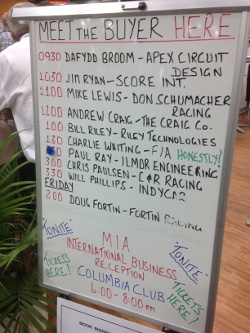 MEET THE BUYER HERE
0930 DAFYDD BROOM - APEX CIRCUIT DESIGN
1030 JIM RYAN - SCORE INT.
1100 MIKE LEWIS - DON SCHUMACHER RACING
1200 ANDREW CRAIG - THE CRAIG CO.
100 BILL RILEY - RILEY TECHNOLOGIES
130 CHARLIE WHITING - FIA HONESTLY!
PAUL RAY - ILMOR ENGINEERING
300 CHRIS PAULSEN - C&R RACING
330 WILL PHILLIPS - INDYCAR
FRIDAY
200 DOUG FORTIN - FORTIN RACING
TONITE
MIA
INTERNATIONAL BUSINESS
RECEPTION
COLUMBIA CLUB
6:00 - 8:00 PM
TICKETS HERE!
TONITE
TICKETS HERE!